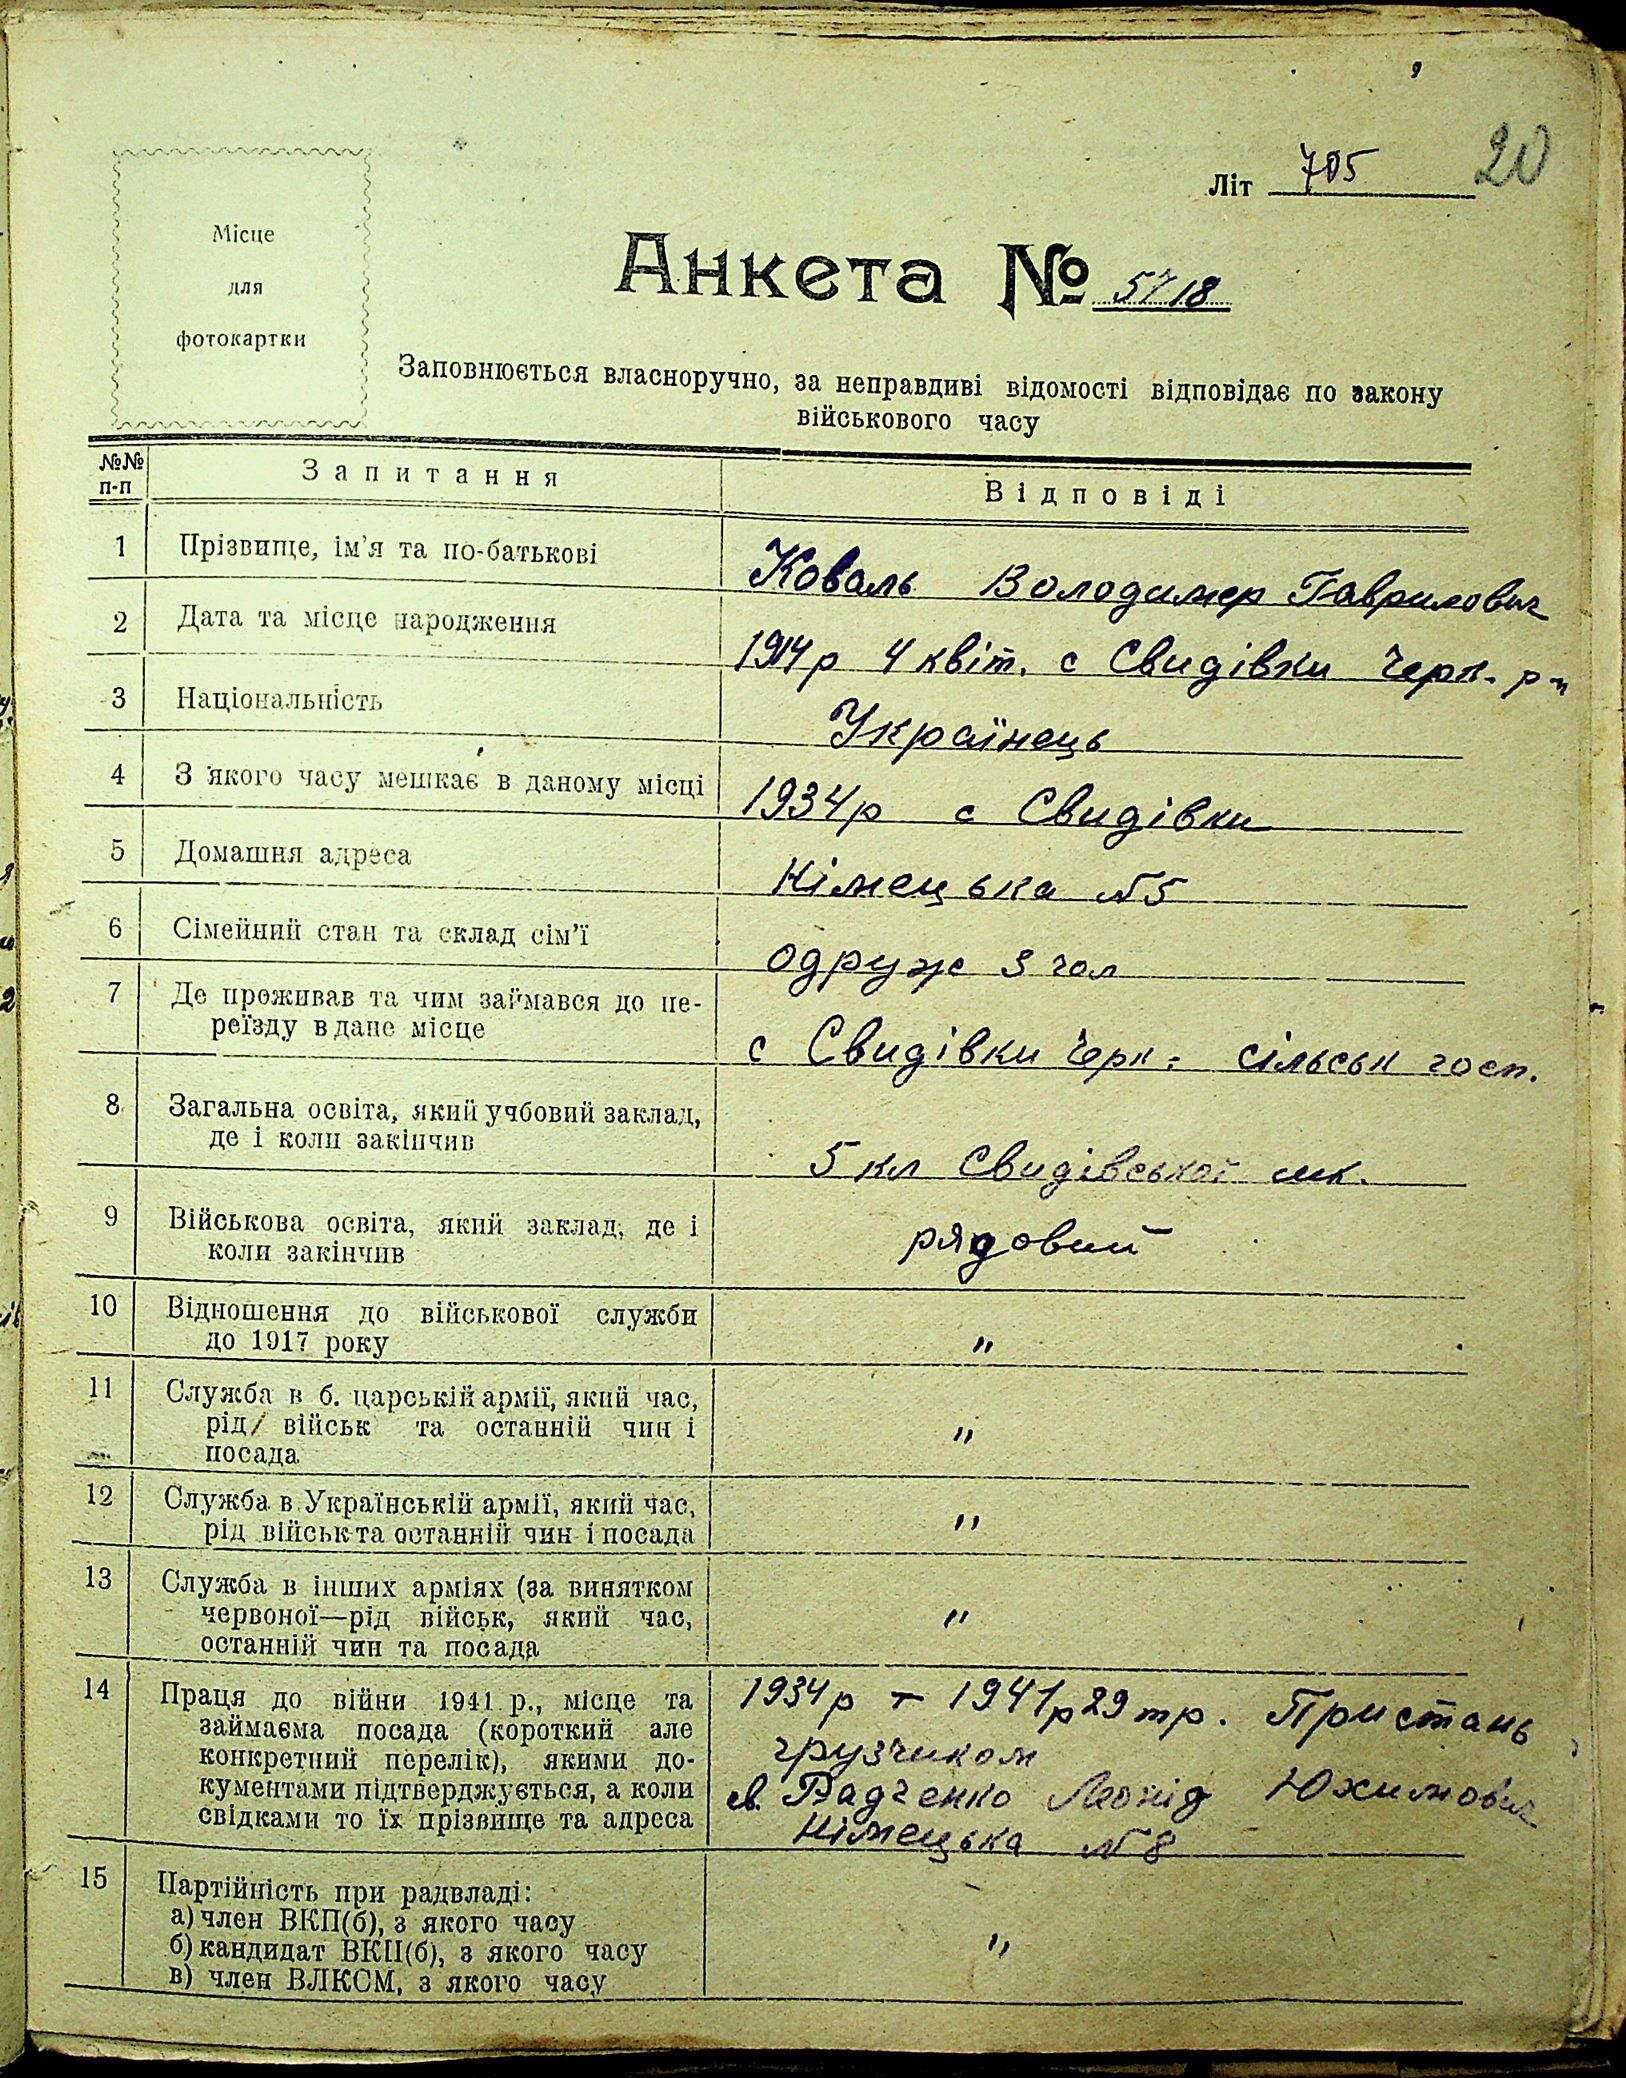 Літ 705 20
Місце
для
фотокартки
Анкета № 5718
Заповнюється власноручно, за неправдиві відомості відповідає по закону
військового часу
№№ п-п Запитання Відповіді
1 Прізвище, ім'я та по-батькові Коваль Володимер Гаврилович
2 Дата та місце народження 1914р 4 квіт. с Свидівки Черк. р-н
3 Національність Українець
4 З якого часу мешкає в даному місці 1934р с Свидівки
5 Домашня адреса Німецька №5
6 Сімейний стан та склад сім'ї одруж 3 чол
7 Де проживав та чим займався до пе-
реїзду в дане місце с Свидівки Черк. сільськ госп.
8 Загальна освіта, який учбовий заклад,
де і коли закінчив 5 кл Свидівської шк.
9 Військова освіта, який заклад, де і
коли закінчив рядовий
10 Відношення до військової служби
до 1917 року "
11 Служба в б. царській армії, який час,
рід військ та останній чин і
посада "
12 Служба в Українській армії, який час,
рід військ та останній чин і посада "
13 Служба в інших арміях (за винятком
червоної—рід військ, який час,
останній чин та посада "
14 Праця до війни 1941 р., місце та
займаєма посада (короткий але
конкретний перелік), якими до-
кументами підтверджується, а коли
свідками то їх прізвище та адреса
1934р – 1941р 29 тр. Пристань
грузчиком
св. Радченко Леонід Юхимович
Німецька №8
15 Партійність при радвладі:
а) член ВКП(б), з якого часу
б) кандидат ВКП(б), з якого часу "
в) член ВЛКСМ, з якого часу